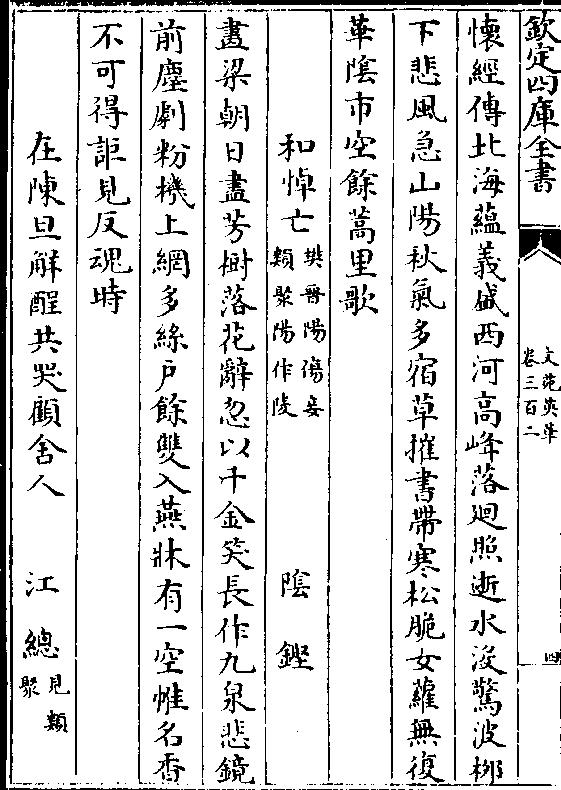 欽定四庫全書
文苑英華
卷三百二
四
懷經傳北海蘊義盛西河高峰落迴照逝水沒驚波柳
下悲風急山陽秋氣多宿草摧書帶寒松脆女蘿無復
華陰市空餘蒿里歌
和悼亡樊晉陽傷妾
類聚陽作陵
陰鏗
畫梁朝日盡芳樹落花辭忽以千金笑長作九泉悲鏡
前塵劇粉機上網多絲戶餘雙入燕牀有一空帷名香
不可得詎見反魂時
在陳旦解酲共哭顧舍人
江總見類
聚